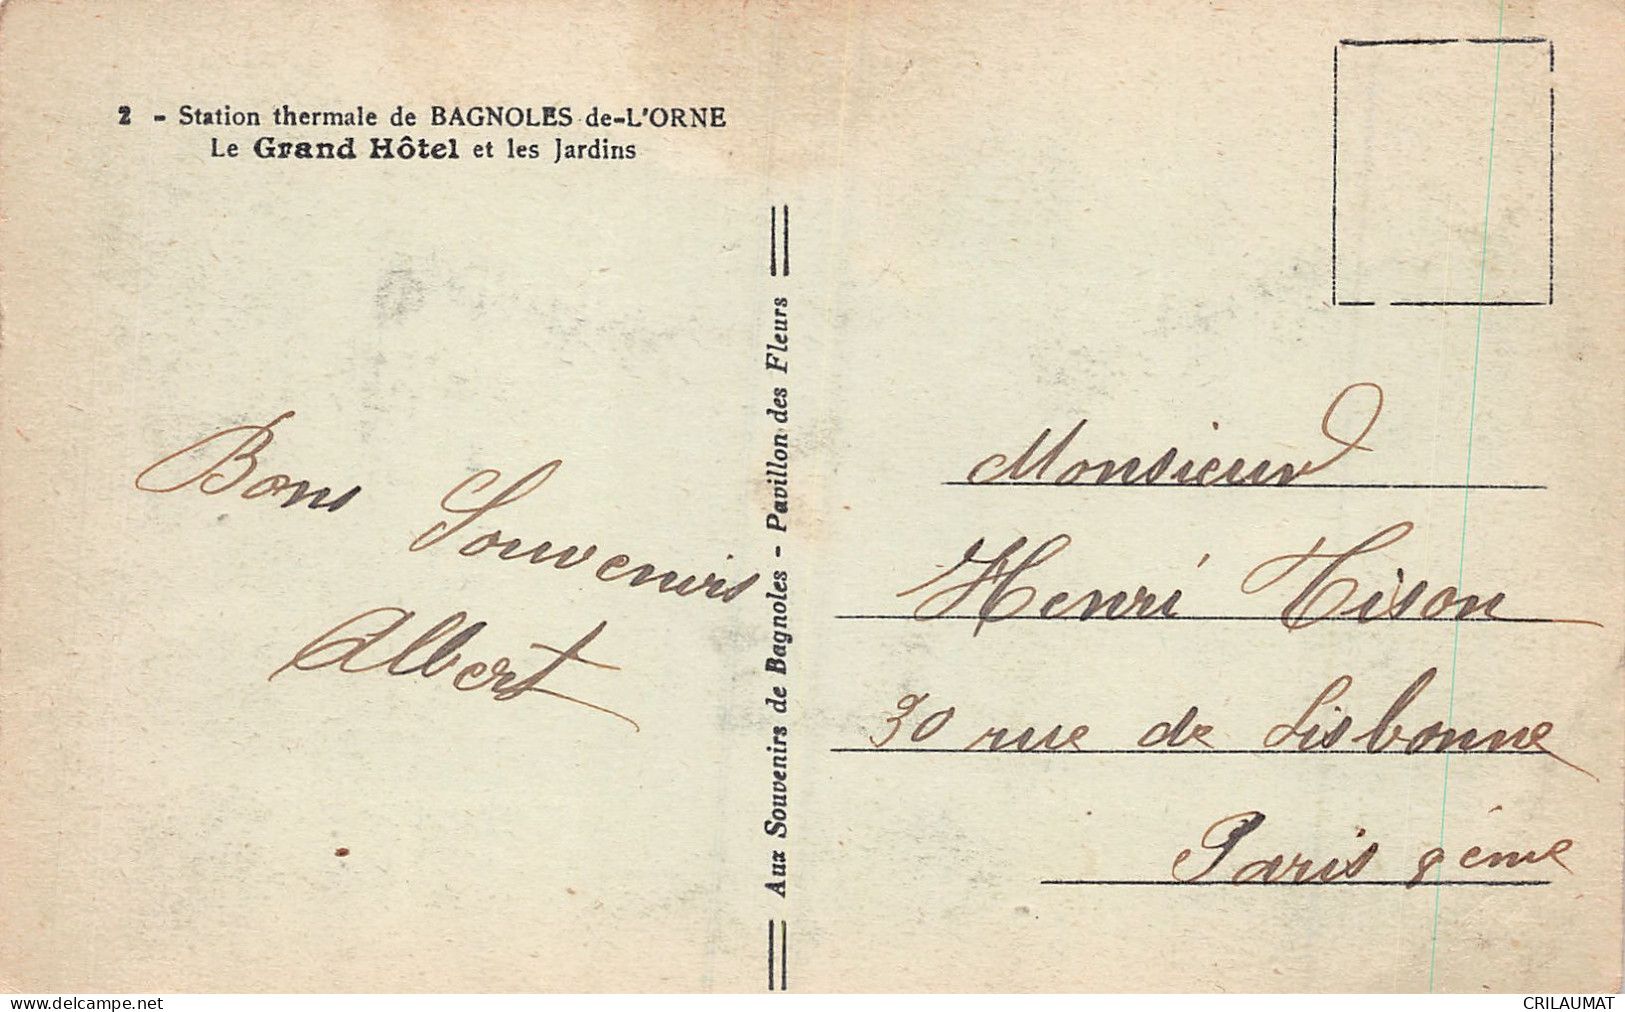 2 - Station thermale de BAGNOLES-de-L'ORNE
Le Grand Hôtel et les Jardins
Bons
Souvenirs
Albert
Aux Souvenirs de Bagnoles - Pavillon des Fleurs
Monsieur
Henri Tison
30 rue de Lisbonne
Paris 8 ème
www.delcampe.net
CRILAUMAT